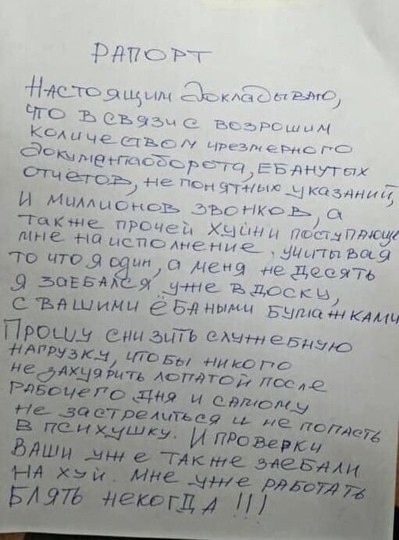 РАПОРТ
Настоящим докладываю,
что в связи с возрошим
количеством чрезмерного
документооборота, ебанутых
отчётов, не понятных указаний,
и миллионов звонков, а
также прочей хуйни поступающе
мне на исполнение, учитывая
то что я один, а меня не десять
я заебался уже в доску,
с вашими ёбаными бумажками
Прошу снизить служебную
нагрузку, чтобы никого
не захуярить лопатой после
рабочего дня и самому
не застрелиться и не попасть
в психушку. И проверки
ваши уже также заебали
на хуй. Мне уже работать
блять некогда!!!